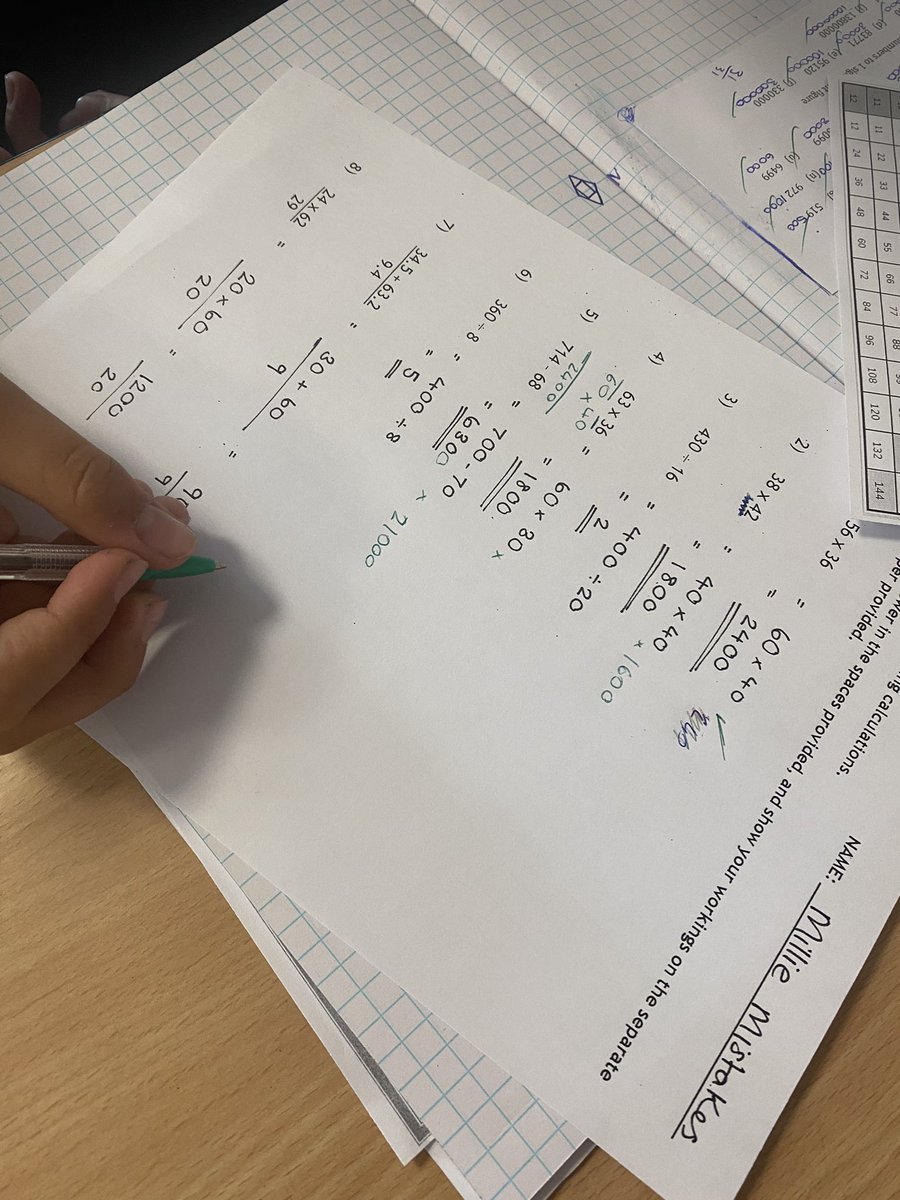 NAME: Millie Mistakes
ng calculations.
wer in the spaces provided, and show your workings on the separate
per provided.
56 x 36 = 60 x 40 ✓
= 2400
2) 38 x 42 = 40 x 40
= 1800 x 1600
3) 430 ÷ 16 = 400 ÷ 20
= 2
4) 63 x 36 = 60 x 80 x
60 x 40 = 1800
2400
5) 714 - 68 = 700 - 70
= 6300 x 21000
6) 360 ÷ 8 = 400 ÷ 8
= 5
7) 34.5 + 63.2 = 30 + 60 = 9
9.4 9 9
8) 24 x 62 = 20 x 60 = 1200
29 20 20
umbers to 1 sig
t figure
(d) 83771
(e) 95120
100000
(f) 330000
300000
13800000
10000000
6099
(o) 6499
6000
(n) 972 1000
519 500
31
31
N
11 11 22 33 44 55 66 77 88
12 12 24 36 48 60 72 84 96 108 120 132 144